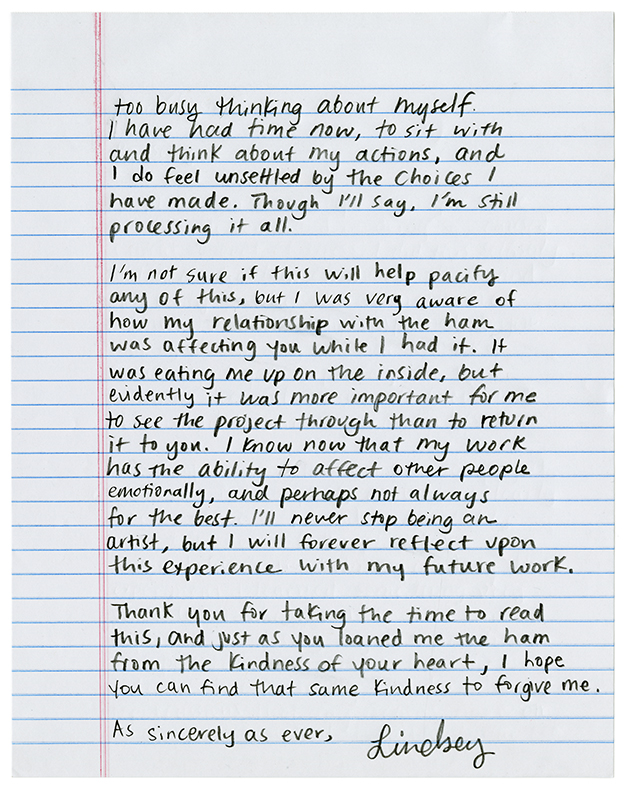 too busy thinking about myself.
I have had time now, to sit with
and think about my actions, and
I do feel unsettled by the choices I
have made. Though I'll say, I'm still
processing it all.
I'm not sure if this will help pacify
any of this, but I was very aware of
how my relationship with the ham
was affecting you while I had it. It
was eating me up on the inside, but
evidently it was more important for me
to see the project through than to return
it to you. I know now that my work
has the ability to affect other people
emotionally, and perhaps not always
for the best. I'll never stop being an
artist, but I will forever reflect upon
this experience with my future work.
Thank you for taking the time to read
this, and just as you loaned me the ham
from the kindness of your heart, I hope
you can find that same kindness to forgive me.
As sincerely as ever, Lindsey